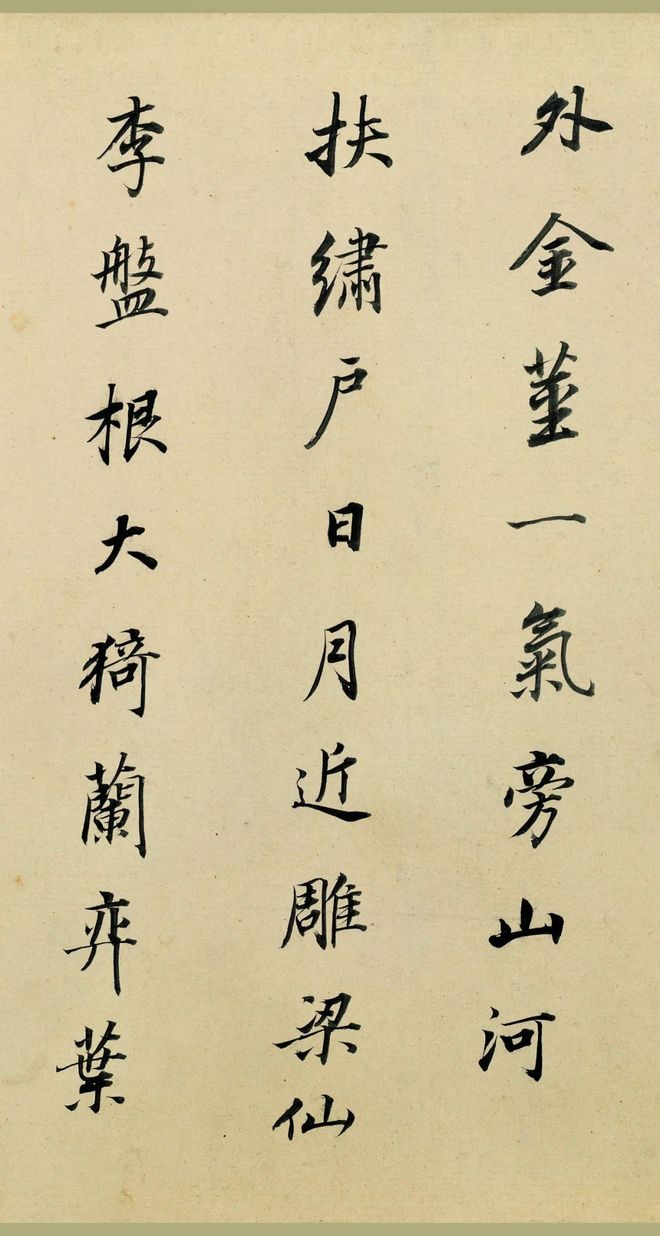 外金莖一氣旁山河
扶繡戶日月近雕梁仙
李盤根大猗蘭弈葉